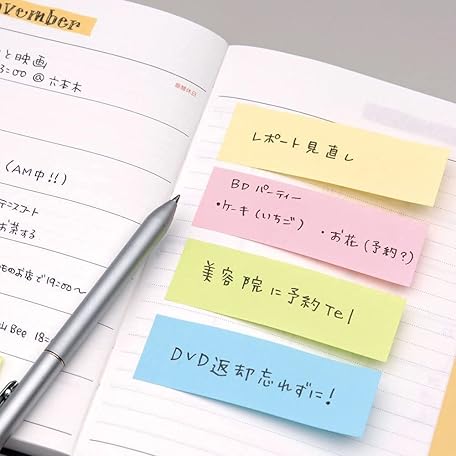 vember
と映画
:00 @ 六本木
振替休日
(AM中!!)
テニスコート
お茶する
ものお店で19:00〜
Bee 18=
レポート見直し
BD パーティー
・ケーキ(いちご) ・お花(予約?)
美容院に予約Tel
DVD返却忘れずに!